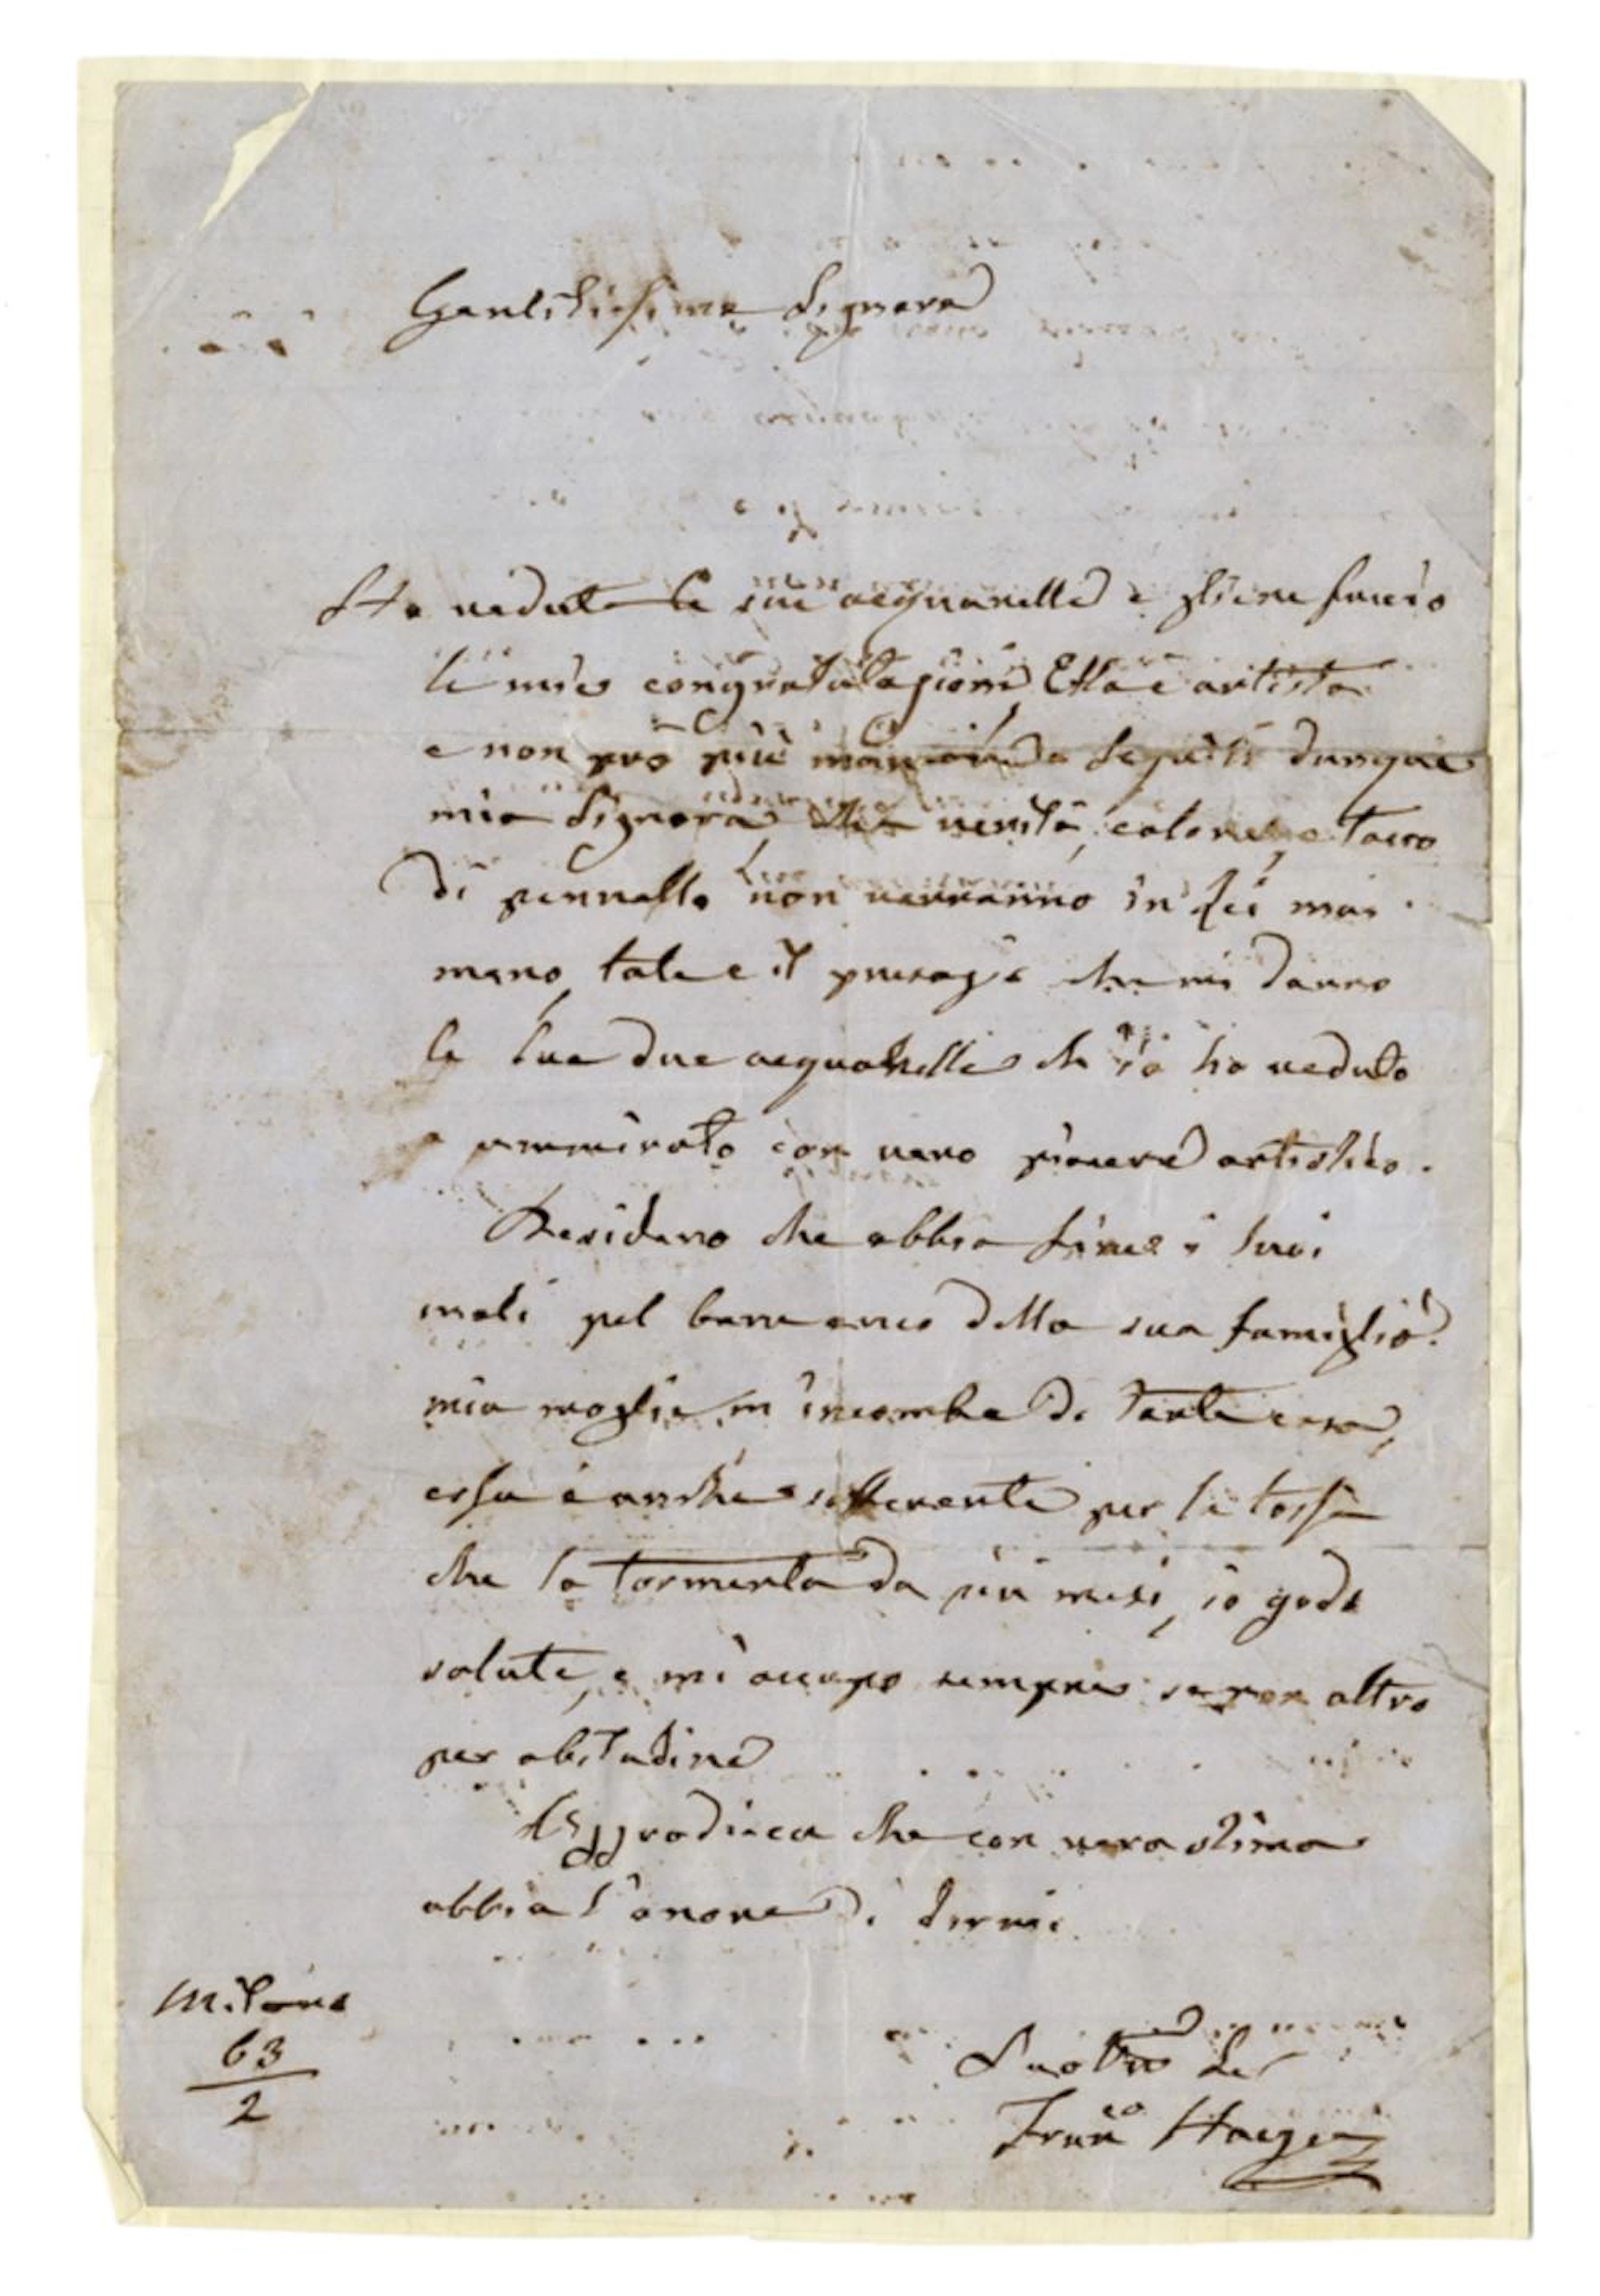 Gentilissima Signora
Ho vedute le sue acquarelle e gliene faccio
le mie congratulazioni, Ella è artista
e non può più mancare Seguiti dunque
mia Signora verità, colore, e tocco
di pennello non verranno in Lei mai
meno, tale è il presagio che mi danno
le sue due acquarelle che io ho veduto
e ammirato con vero piacere artistico.
Desidero che abbia fine i suoi
mali pel bene anco della sua famiglia.
mia moglie m'incombe di tante cose,
essa è anche sofferente per la tosse
che la tormenta da più mesi, io godo
salute, e mi occupo sempre se non altro
per abitudine
Aggradisca che con vera stima
abbia l'onore di dirmi
Milano
63
2
Suo Ser
Franco Hayez